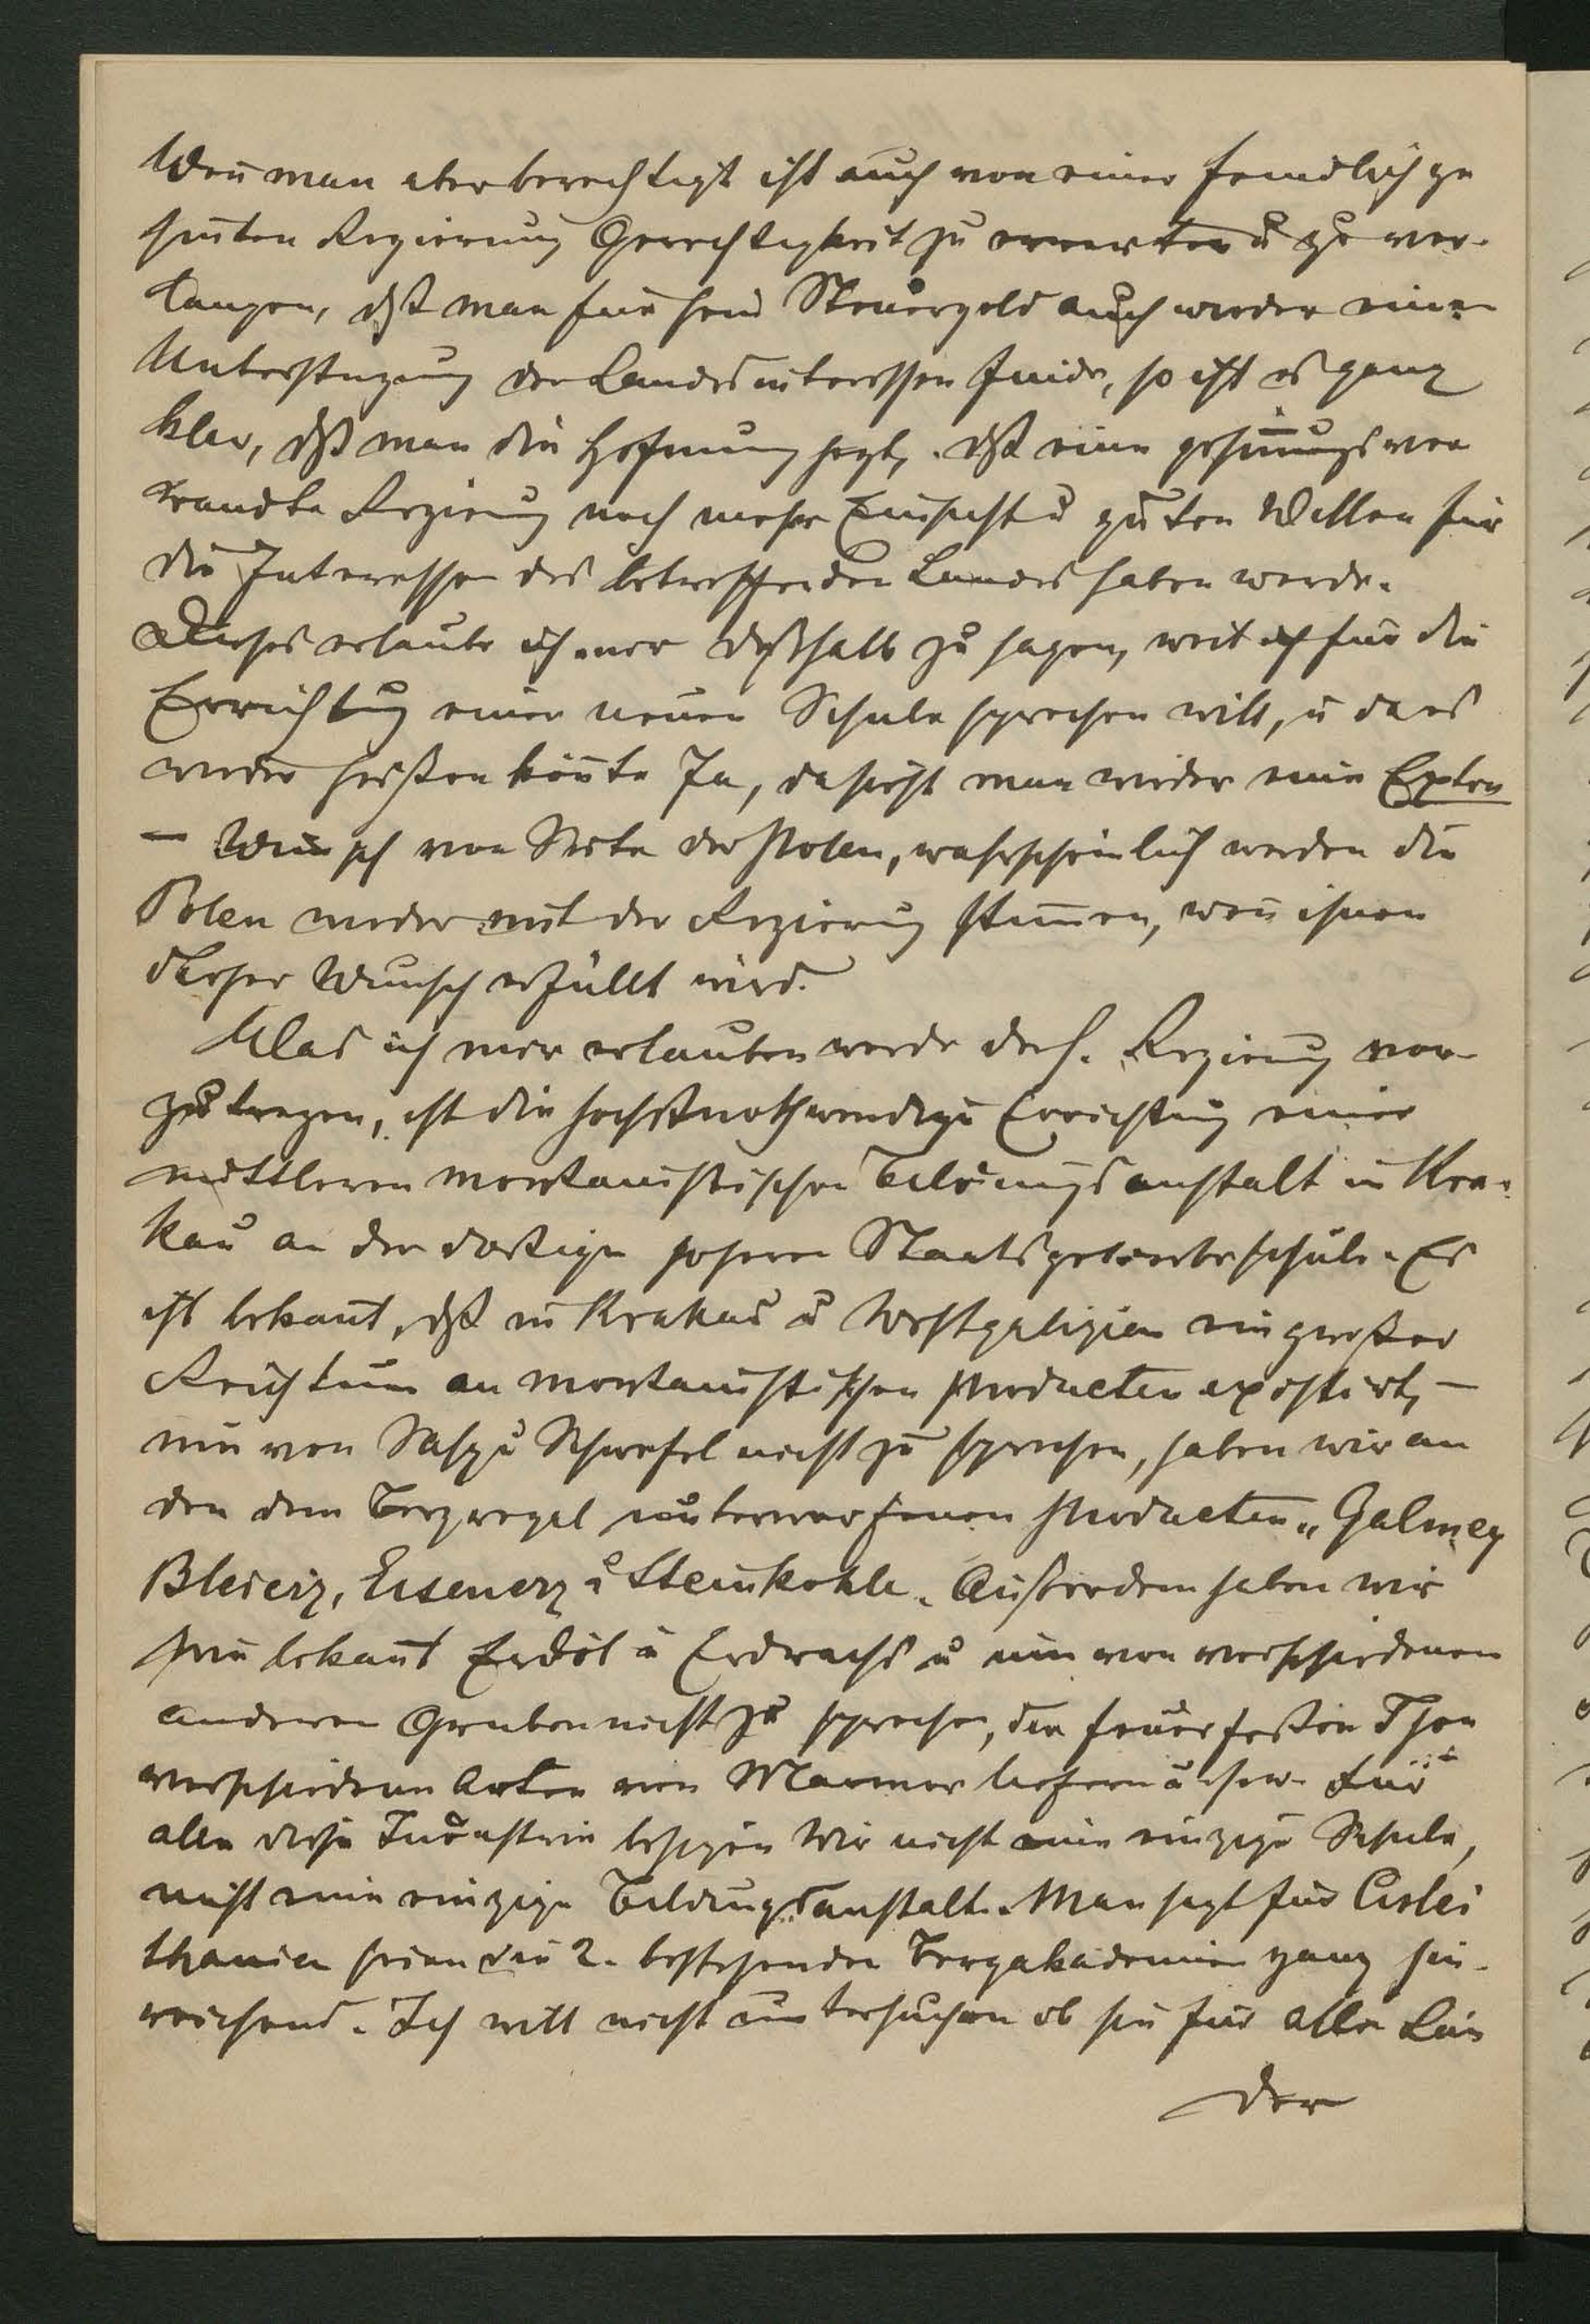 Weñ man aber berechtigt ist auch von einer feindlich ge
siñten Regierung Gerechtigkeit zu erwarten u zu ver-
langen, dß man für sein Steuergeld auch wieder eine
Unterstüzung der Landesinteressen finde, so ist es ganz
klar, dß man die Hoffnung hegt, dß eine gesiñungsver
wandte Regierung noch mehr Einsicht u guten Willen für
die Interessen des betreffenden Landes haben werde.
Dieses erlaube ich mir deßhalb zu sagen, weil ich für die
Errichtung einer neuen Schule sprechen will, u da es
wieder heißen köñte Ja, da sieht man wieder eine Extra
– Wunsch von Seite der Polen, wahrscheinlich werden die
Polen wieder mit der Regierung stim̄en, weñ ihnen
dieser Wunsch erfüllt wird.
Was ich mir erlauben werde der h. Regierung vor-
zutragen, ist die höchstnothwendige Errichtung einer
mittleren montanistischen Bildungsanstalt in Kra-
kau an der dortigen höheren Staatsgewerbeschule. Es
ist bekañt, dß in Krakau u Westgalizien ein großer
Reichtum an montanistischen Producten existirt, –
um von Salz u Schwefel nicht zu sprechen, haben wir an
den dem Bergregal unterworfenen Producten „Galmey
Bleierz, Eisenerz u Steinkohle. Außerdem haben wir
bekañt Erdöl u Erdwachs u um von verschiedenen
anderen Gruben nicht zu sprechen, die feuerfesten Thon
verschiedene Arten von Marmor liefern u s w. Für
alle diese Industrien besizen Wir nicht eine einzige Schule,
nicht eine einzige Bildungsanstalt. Man sagt für Cislei
thanien seien die 2. bestehenden Bergakademien ganz hin-
reichend. Ich will nicht untersuchen ob sie für alle Län
der